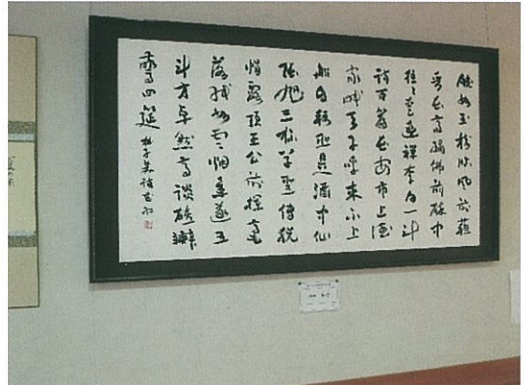 皎如玉樹臨風前蘇
晉長齋繍佛前醉中
往々愛逃禅李白一斗
詩百篇長安市上酒
家眠天子呼来不上
船自稱臣是酒中仙
張旭三杯草聖傳脱
帽露頂王公前揮毫
落紙如雲烟焦遂五
斗方卓然高談雄辯
驚四筵 杜子美詩